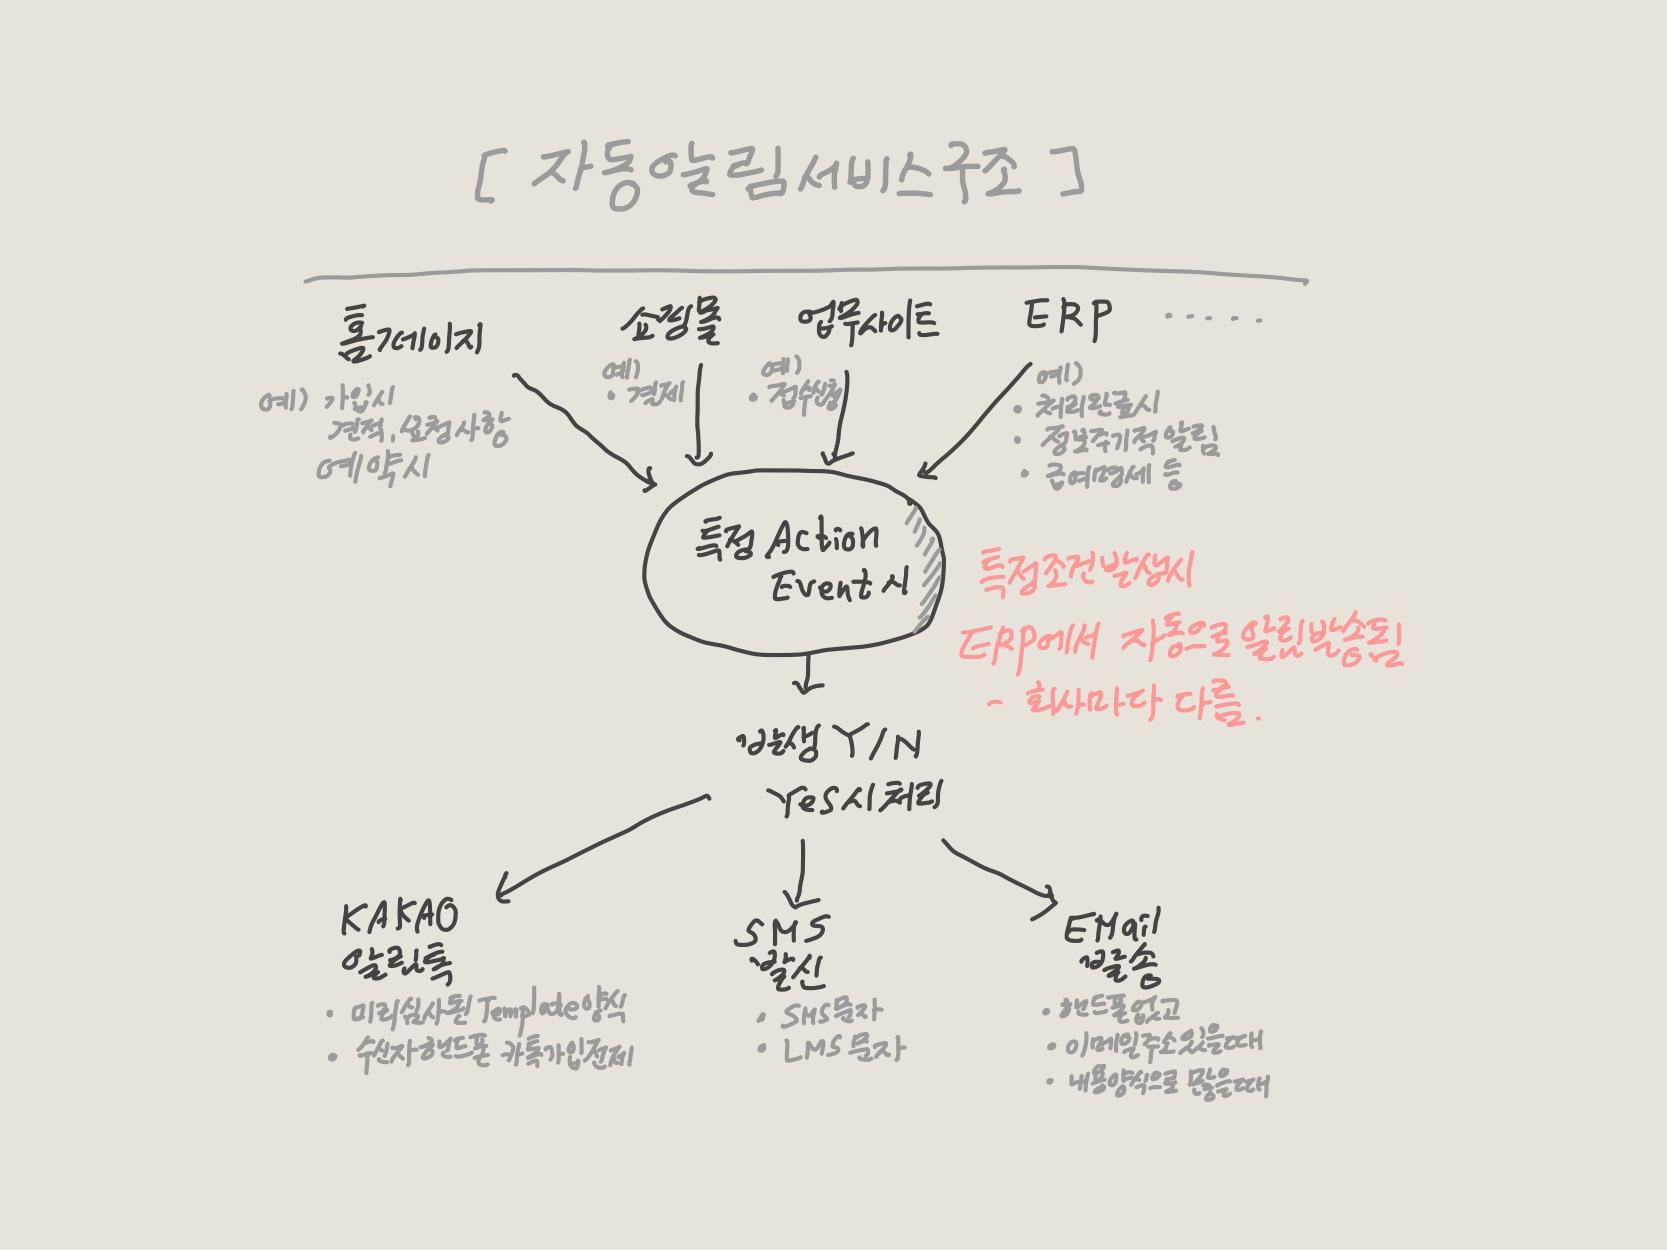 [ 자동알림서비스구조 ]
홈페이지
예) 가입시
견적, 요청사항
예약시
쇼핑몰
예)
• 결제
업무사이트
예)
• 접수신청
ERP ·····
예)
• 처리완료시
• 정보주기적 알림
• 급여명세 등
특정 Action
Event 시
특정조건발생시
ERP에서 자동으로 알림발송됨
- 회사마다 다름.
발생 Y/N
Yes시 처리
KAKAO
알림톡
• 미리심사된 Template양식
• 수신자핸드폰 카톡가입전제
SMS
발신
• SMS문자
• LMS문자
EMail
발송
• 핸드폰없고
• 이메일주소있을때
• 내용양식으로 많을때